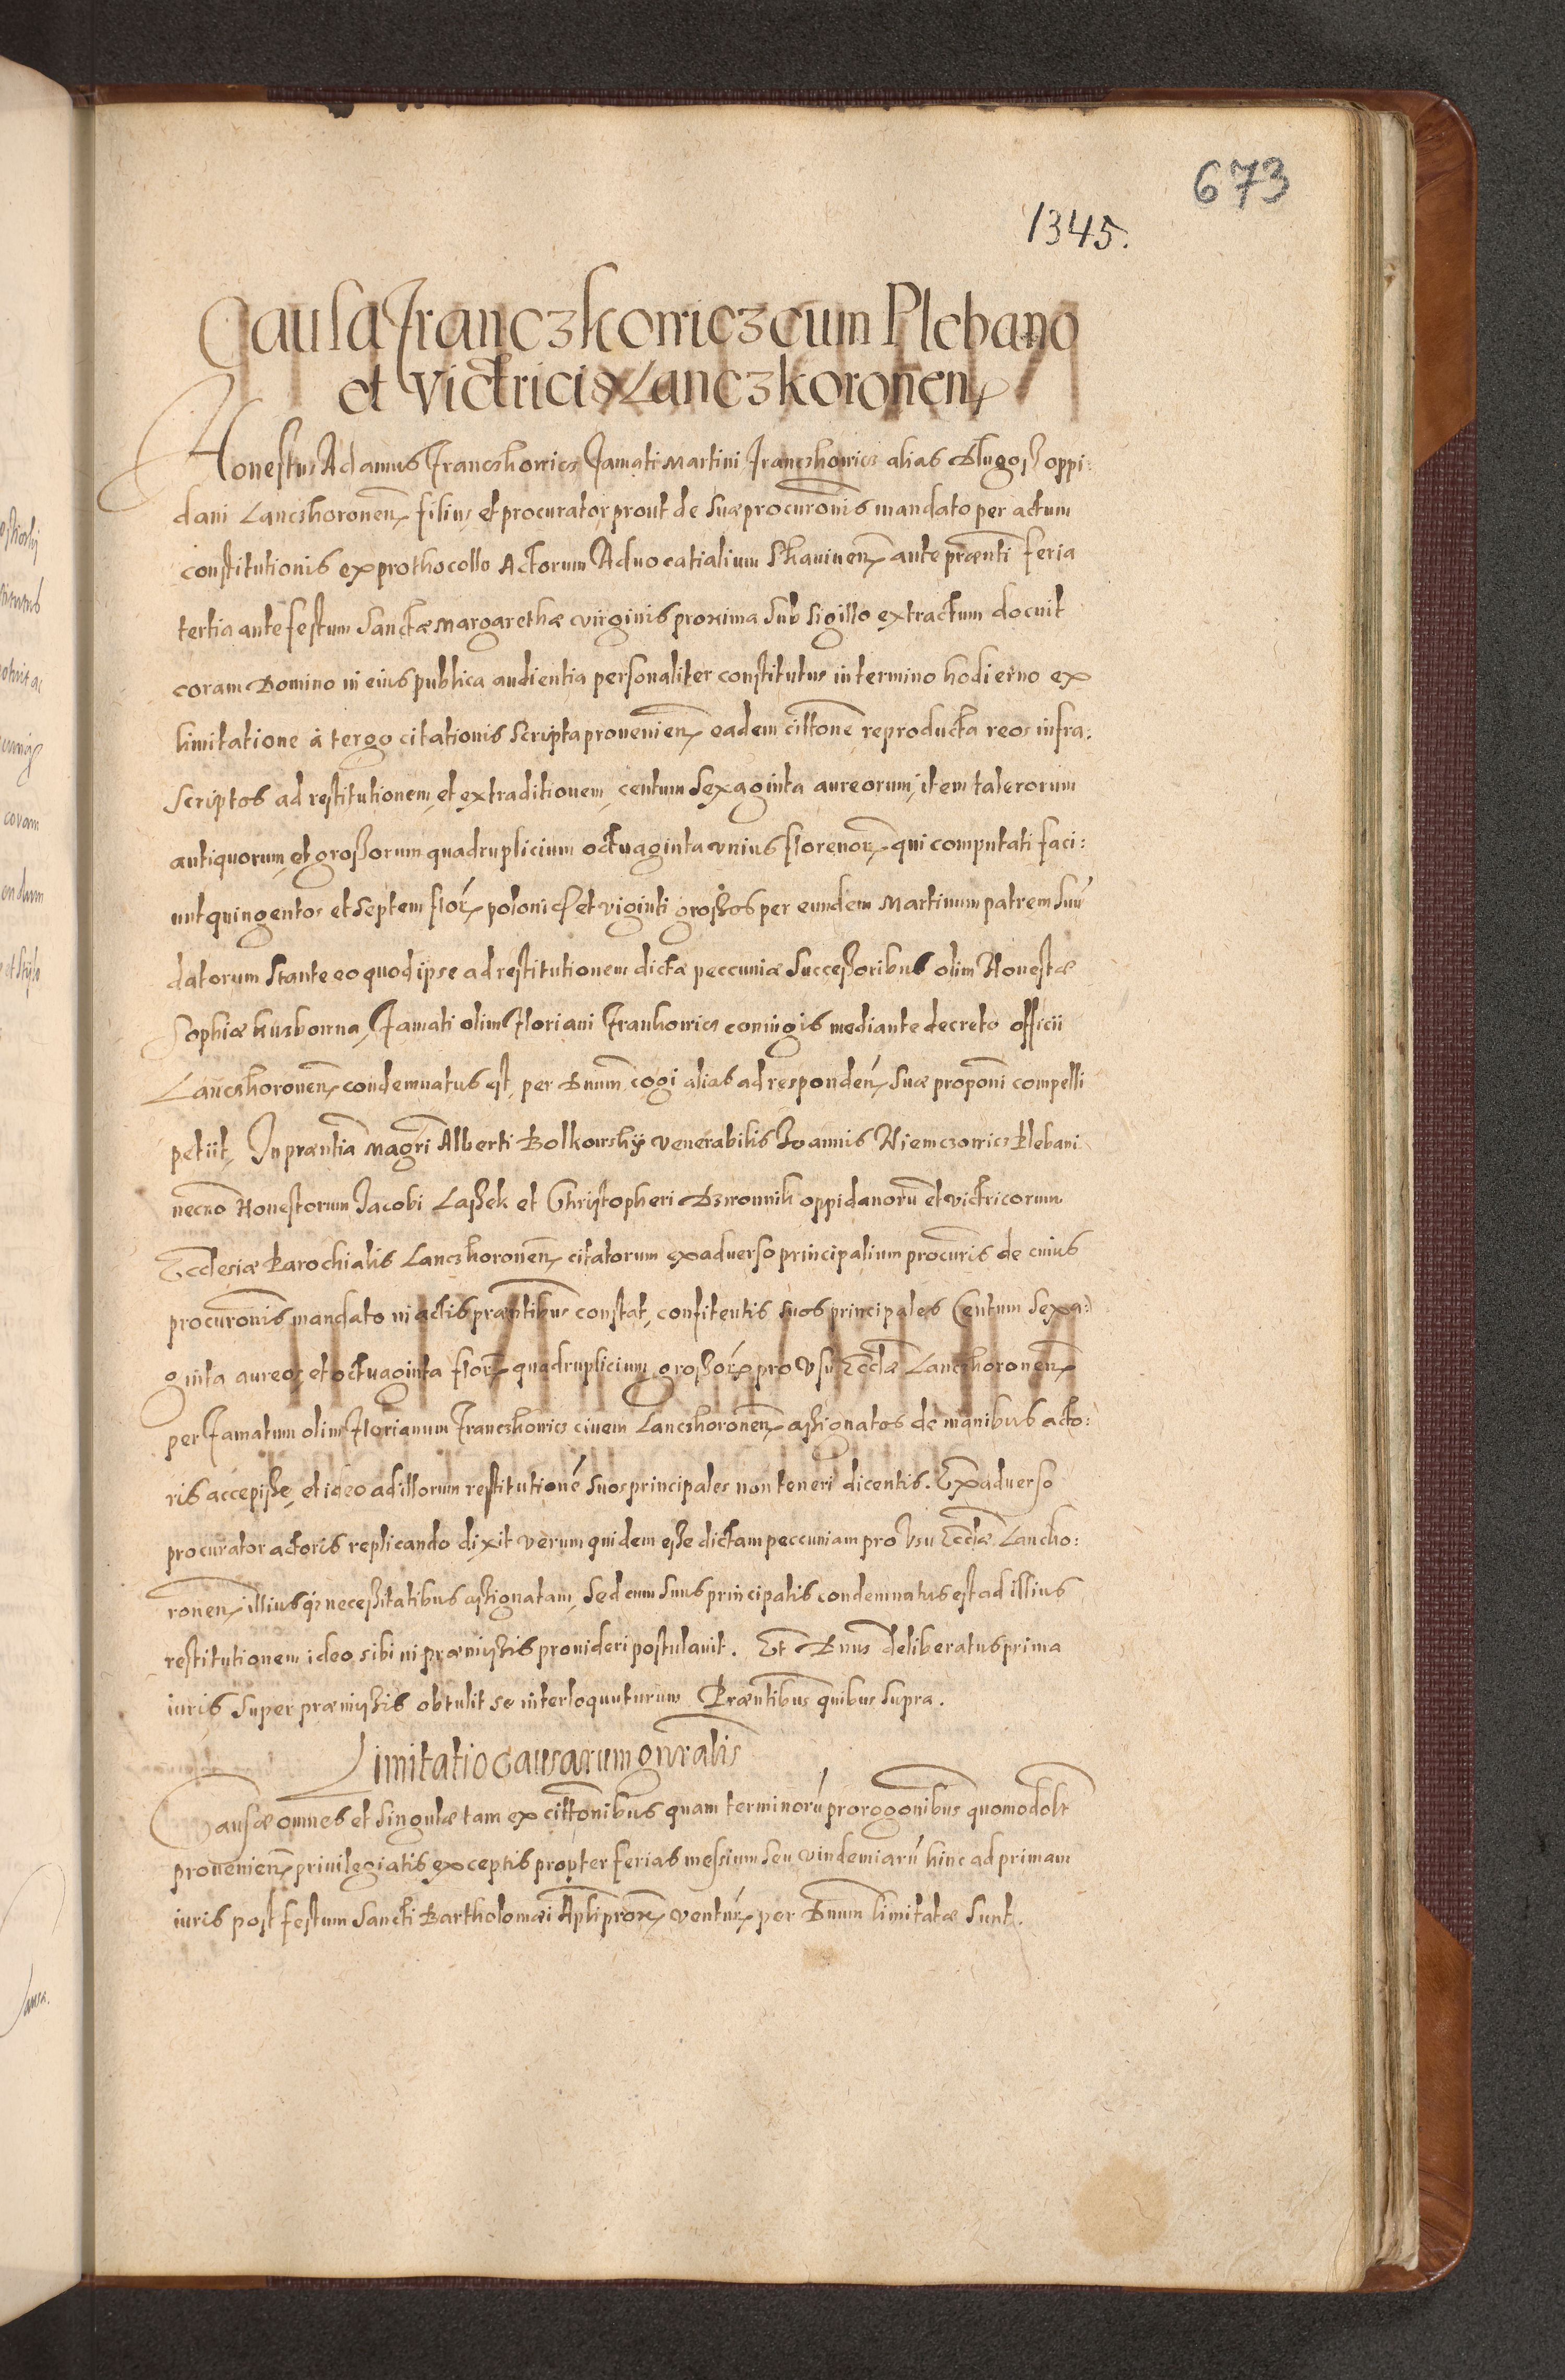 673
1345.
Causa Franczkowicz cum Plebano
et Victricis Lanczkoronen
Honestus Adamus Franczkowicz Famati Martini Franczkowicz alias Dlugosz oppi:
dani Lanczkoronen filius et procurator prout de suae procuronis mandato per actum
constitutionis ex prothocollo Actorum Advocatialium Skavinen ante praenti feria
tertia ante festum Sanctae Margarethae virginis proxima sub sigillo extractum docuit
coram Domino in eius publica audientia personaliter constitutus in termino hodierno ex
limitatione à tergo citationis scripta provenien eadem cittone reproducta reos infra:
scriptos ad restitutionem et extraditionem centum sexaginta aureorum, item talerorum
antiquorum, et großorum quadruplicium octuaginta unius florenor qui computati faci:
unt quingentos et septem flor polonic et viginti großos per eundem Martinum patrem suu
datorum stante eo quod ipse ad restitutionem dictae peccuniae successoribus olim Honestae
Sophiae Famati olim Floriani Frankowicz coniugis mediante decreto officii
Lanczkoronen condemnatus est, per Dnum cogi alias ad responden suae proponi compelli
petiit, In praentia Magri Alberti Bolkowsky venerabilis Joannis Niemczowicz Plebani
necno Honestorum Jacobi Laßek et Christopheri Dzwonnik oppidanoru et victricorum
Ecclesiae Parochialis Lanczkoronen citatorum ex adverso principalium procuris de cuius
procuronis mandato in actis praentibus constat, confitentis suos principales Centum sexa:
ginta aureos et octuaginta flor quadruplicium großor pro usu Eccliae Lanczkoronen
per Famatum olim Florianum Franczkowicz civem Lanczkoronen aßignatos de manibus acto:
ris accepiße, et ideo ad illorum restitutione suos principales non teneri dicentis. Ex adverso
procurator actoris replicando dixit verum quidem eße dictam peccuniam pro usu Eccliae Lancko:
ronen illiusq neceßitatibus aßignatam, sed cum suus principalis condemnatus est ad illius
restitutionem ideo sibi in praemißis provideri postulavit. Et Dnus deliberatus prima
iuris super praemißis obtulit se interloquuturum Praentibus quibus supra.
Limitatio causarum gnralis
Causae omnes et singulae tam ex cittonibus quam terminoru prorogonibus quomodolt
provenien privilegiatis exceptis propter ferias messium seu vindemiaru hinc ad primam
iuris post festum Sancti Bartholomaei Apli prox ventur per Dnum limitatae sunt.